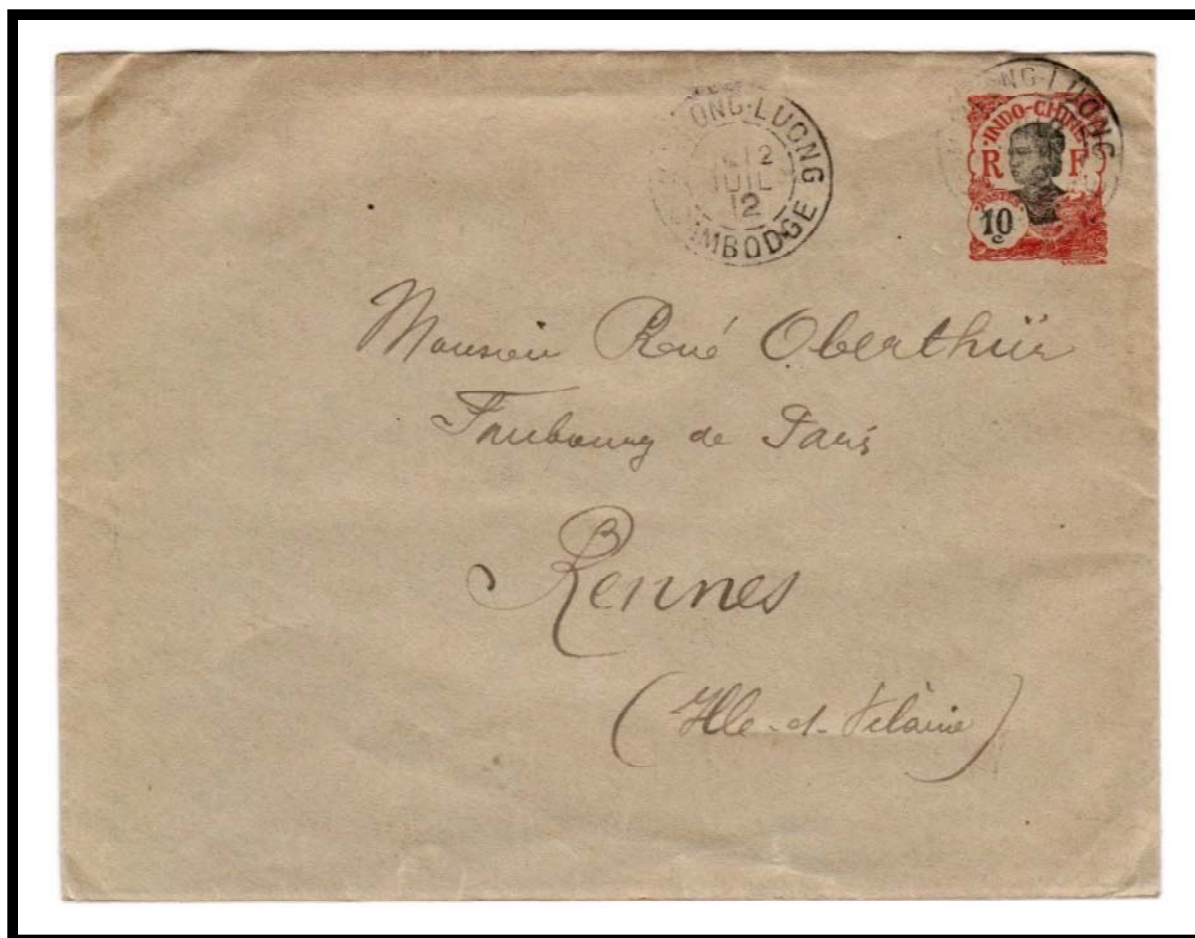 ONG-LUONG
12
JUIL
12
MBODGE
NG-LUONG
INDO-CHINE
R F
POSTES
10
c
Monsieur René Oberthür
Faubourg de Paris
Rennes
(Ille-et-Vilaine)